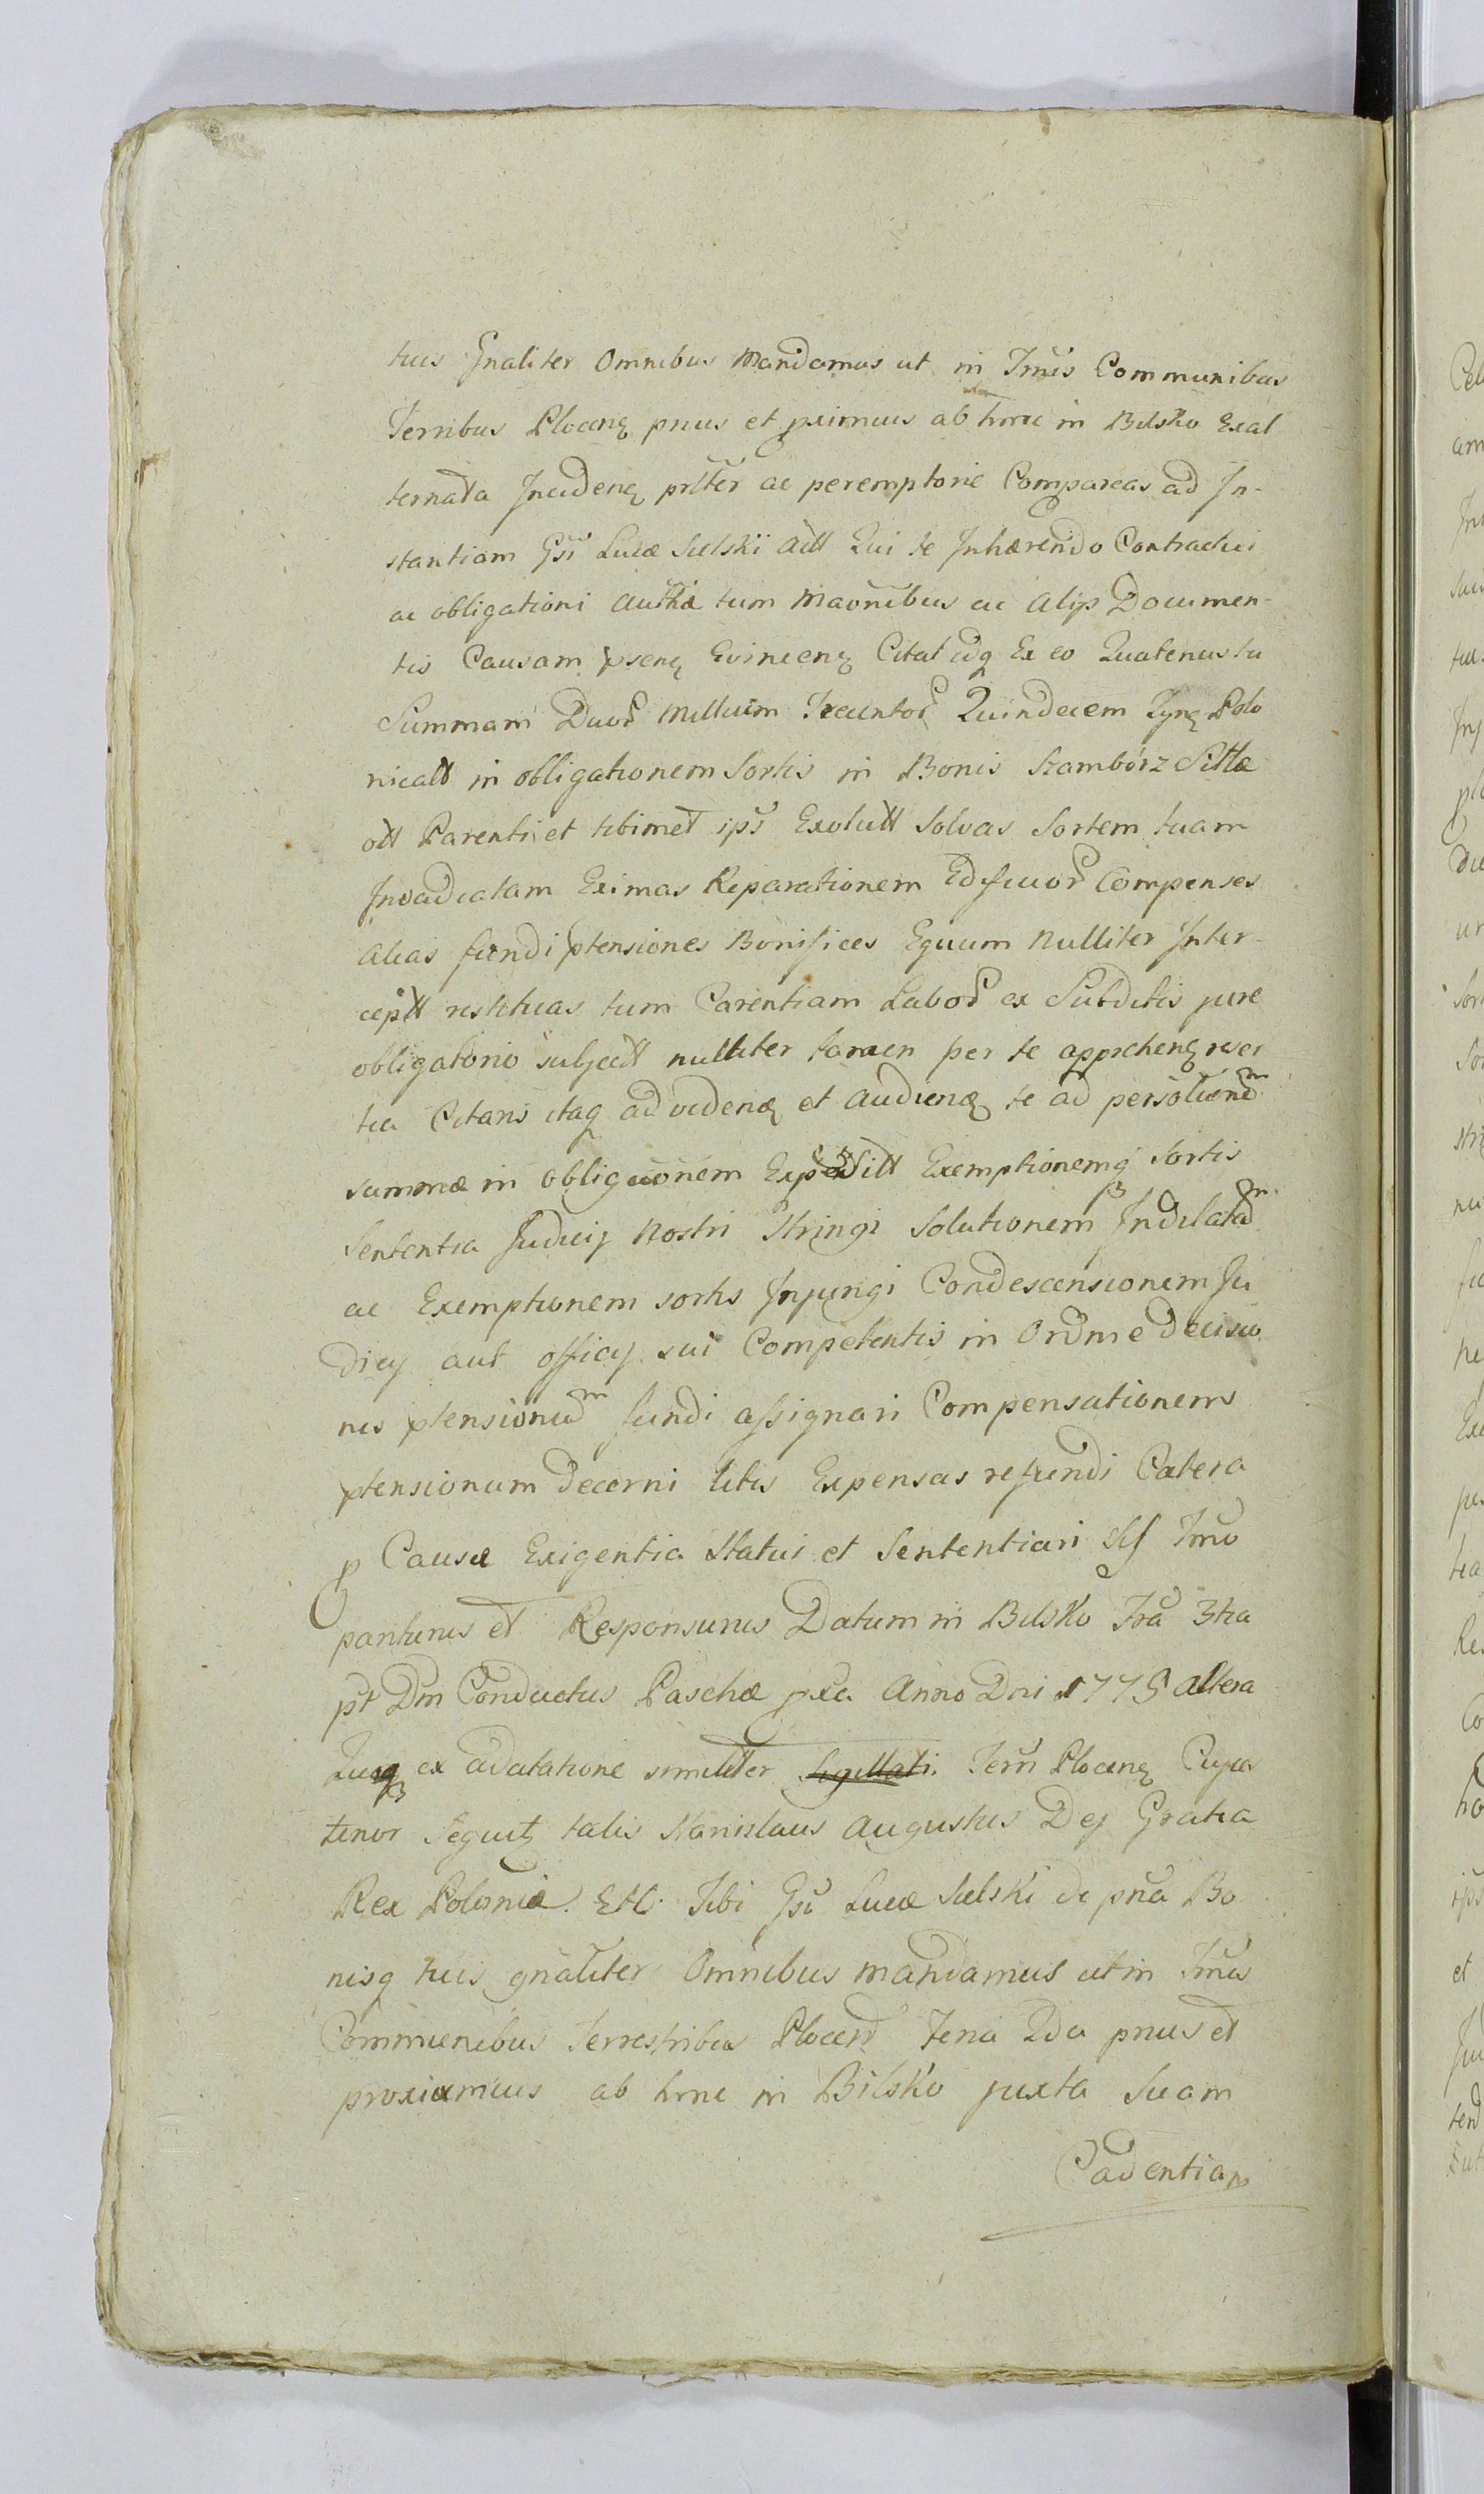 tuis Gnaliter Omnibus Mandamus ut in Tmis Communibus
Terribus Plocenę pnus et pximus ab hinc in Bilsko Exal
ternata Incidenę prlter ac peremptorie Compareas ad In-
stantiam Gsi Lucæ Sulski Actt Qui te Inhærendo Contractui
ac obligationi Authæ tum Maonibus ac Alijs Documen-
tis Causam psenę Evincenę Citat idq Ex eo Quatenus tu
Summam Duor Millium Trecentor Quindecem Tynę Polo
nicalt in obligationem Sortis in Bonis Szambórz Sittæ
ott Parenti et tibimet ipsi Exolutt Solvas Sortem tuam
Invadiatam Eximas Reparationem Edificior Compenses
Alias fundi ptensiones Bonifices Equum Nulliter Inter-
ceptt restituas tum Carentiam Labor ex Subditis jure
obligatorio subjectt nulliter tamen per te apprehenę reser
tia Citans itaq ad videnę et Audienę te ad persoluend
summæ in obligaonem Expositt Exemptionemq Sortis
Sententia Judicij Nostri Stringi Solutionem Indilatam
ac Exemptionem sortis Injungi Condescensionem Ju
dicij aut officij sui Competentis in Ordine Decisio
nis ptensionum fundi assignari Compensationem
ptensionum Decerni litis Expensas refundi Cætera
p Causæ Exigentia Statui et Sententiari Sis Tmo
pariturus et Responsurus Datum in Bilsko Fra 3tia
pt Dm Conductus Paschæ pxa Anno Dni 1775 Altera
Quoq ex adcitatione similiter Sigillati Terri Plocenę Cujus
tenor Sequitz talis Stanislaus Augustus Dej Gratia
Rex Poloniæ Ettc. Tibi Gsi Lucæ Sulski de pna Bo
nisq tuis gnaliter Omnibus mandamus ut in Tmis
Communibus Terrestribus Plocen Feria 2da pnus et
proximus ab hinc in Bilsko juxta Suam
Cadentiam